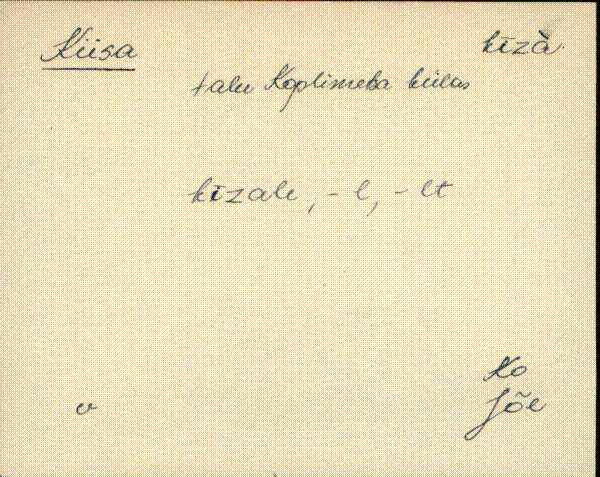 Kiisa kīzà
talu Koplimetsa külas
kīzale, -l, -lt
Ko
v Jõe